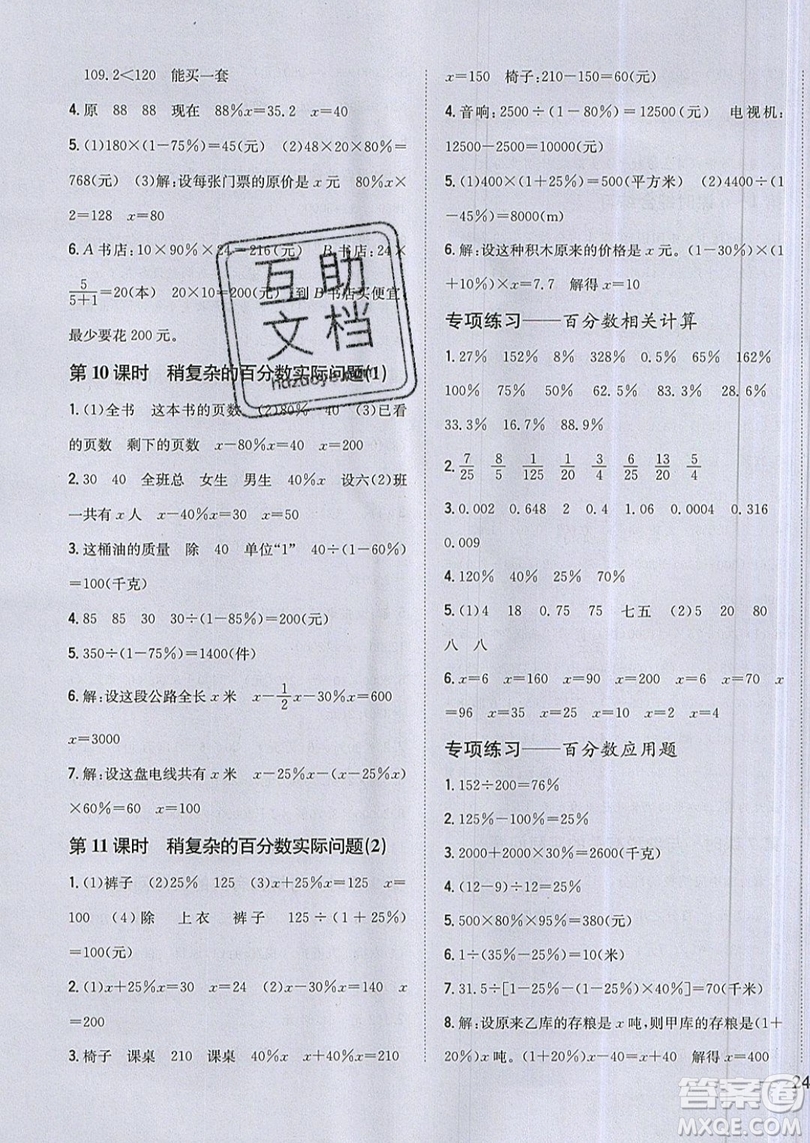 109.2＜120　能买一套
4.原　88　88　现在　88%x=35.2　x=40
5.(1)180×(1－75%)=45(元)　(2)48×20×80%=
768(元)　(3)解:设每张门票的原价是 x 元　80%x×
2=128　x=80
6.A 书店:10×90%×24=216(元)　B 书店:24×
5/(5+1)=20(本)　20×10=200(元)　到 B 书店买便宜,
最少要花 200 元。
第 10 课时　稍复杂的百分数实际问题(1)
1.(1)全书　这本书的页数　(2)80%　40　(3)已看
的页数　剩下的页数　x－80%x=40　x=200
2.30　40　全班总　女生　男生　40%x　设六(2)班
一共有 x 人　x－40%x=30　x=50
3.这桶油的质量　除　40　单位“1”　40÷(1－60%)
=100(千克)
4.85　85　30　30÷(1－85%)=200(元)
5.350÷(1－75%)=1400(件)
6.解:设这段公路全长 x 米　x－1/2x－30%x=600
x=3000
7.解:设这盘电线共有 x 米　x－30%x－(1－30%)x
×60%=840　x=3000
第 11 课时　稍复杂的百分数实际问题(2)
1.(1)裤子　(2)25%　125　(3)x+25%x=125　x=
100　(4)除　上衣　裤子　125÷(1+25%)
=100(元)
2.(1)x+25%x=30　x=24　(2)x－30%x=140　x
=200
3.椅子　课桌　210　课桌　40%x　x+40%x=210
x=150　椅子:210－150=60(元)
4.音响:2500÷(1－80%)=12500(元)　电视机:
12500－2500=10000(元)
5.(1)400×(1+25%)=500(平方米)　(2)4400÷(1
－45%)=8000(m)
6.解:设这种积木原来的价格是 x 元。(1－30%)×(1
+10%)×x=7.7　解得 x=10
专项练习——百分数相关计算
1.27%　152%　328%　0.5%　65%　162%
100%　75%　31.3%　225%　140%　150%
33.3%　16.7%　88.9%
2.7/25　8/5　1/125　1/20　3/4　6/25　32/25　5/4
3.0.002　0.648　2　0.4　1.06　0.0004　0.316
0.009
4.120%　10%　25%　70%
5.(1)4　18　0.75　75　七五　(2)5　20　80
八　八
6.x=6　x=160　x=200　x=6　x=70　x
=96　x=35　x=10　x=2　x=4
专项练习——百分数应用题
1.152÷200=76%
2.24÷(24+1)×100%=96%
3.2000+2000×30%=2600(千克)
4.(12－9)÷12=25%
5.500×80%×95%=380(元)
6.1÷(35%－25%)=10(米)
7.31.5÷[1－25%－(1－25%)×40%]=70(千米)
8.解:设原来乙库的存粮是 x 吨,则甲库的存粮是(1+
20%)x 吨。(1+20%)x－40=x+40　解得 x=400
24
互助
文档
答案圈
MXQE.COM